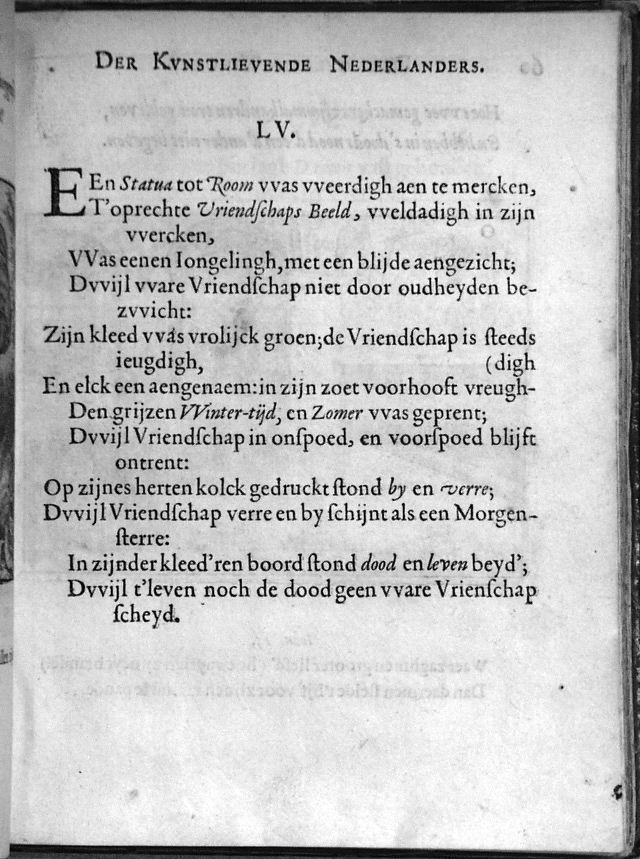 DER KVNSTLIEVENDE NEDERLANDERS.
LV.
EEn Statua tot Room vvas vveerdigh aen te mercken,
T'oprechte Vriendſchaps Beeld, vveldadigh in zijn
vvercken,
VVas eenen Iongelingh, met een blijde aengezicht;
Dvvijl vvare Vriendſchap niet door oudheyden be-
zvvicht:
Zijn kleed vvas vrolijck groen; de Vriendſchap is ſteeds
ieugdigh, (digh
En elck een aengenaem: in zijn zoet voorhooft vreugh-
Den grijzen VVinter-tijd, en Zomer vvas geprent;
Dvvijl Vriendſchap in onſpoed, en voorſpoed blijft
ontrent:
Op zijnes herten kolck gedruckt ſtond by en verre;
Dvvijl Vriendſchap verre en by ſchijnt als een Morgen-
ſterre:
In zijnder kleed'ren boord ſtond dood en leven beyd';
Dvvijl t'leven noch de dood geen vvare Vrienſchap
ſcheyd.